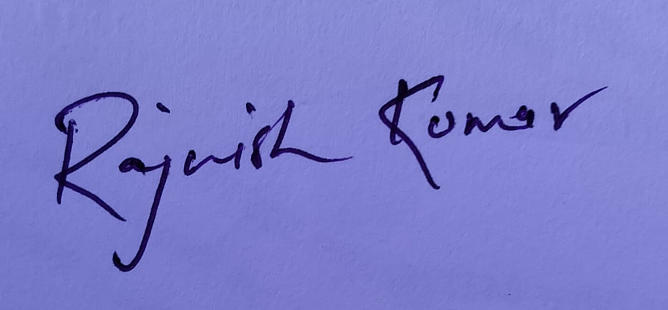 Rajnish Kumar